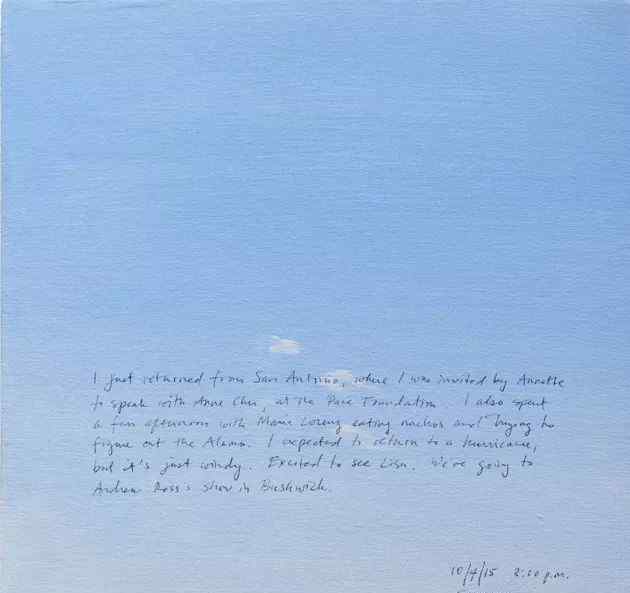 I just returned from San Antonio, where I was invited by Annette
to speak with Anne Chu, at the Pace Foundation. I also spent
a fun afternoon with Marie Lorenz eating nachos and trying to
figure out the Alamo. I expected to return to a hurricane,
but it's just windy. Excited to see Lisa. We're going to
Andrew Ross's show in Bushwick.
10/4/15 2:00 p.m.